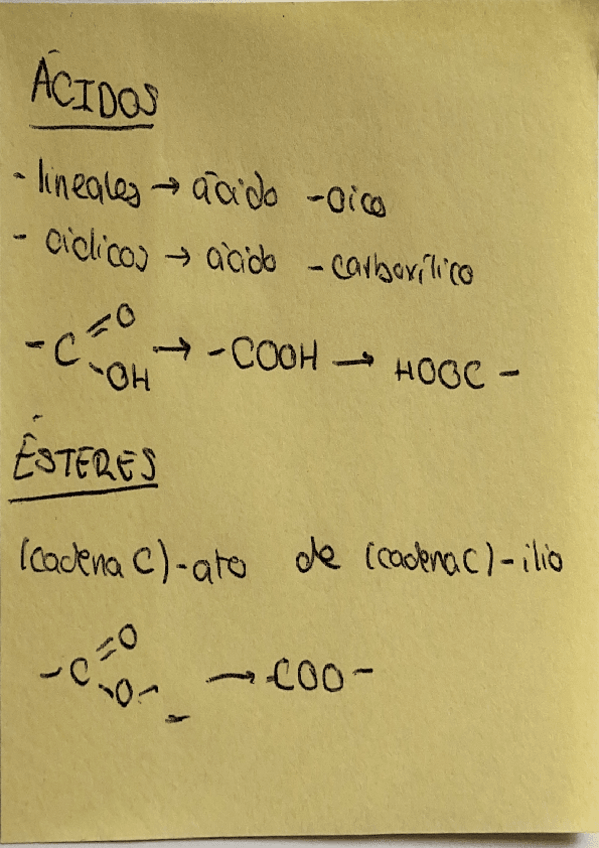 ÁCIDOS
- lineales → ácido -oico
- cíclicos → ácido -carboxílico
-C =O -OH → -COOH → HOOC -
ÉSTERES
(cadena C)-ato de (cadena C)-ilio
-C =O -O- → -COO-